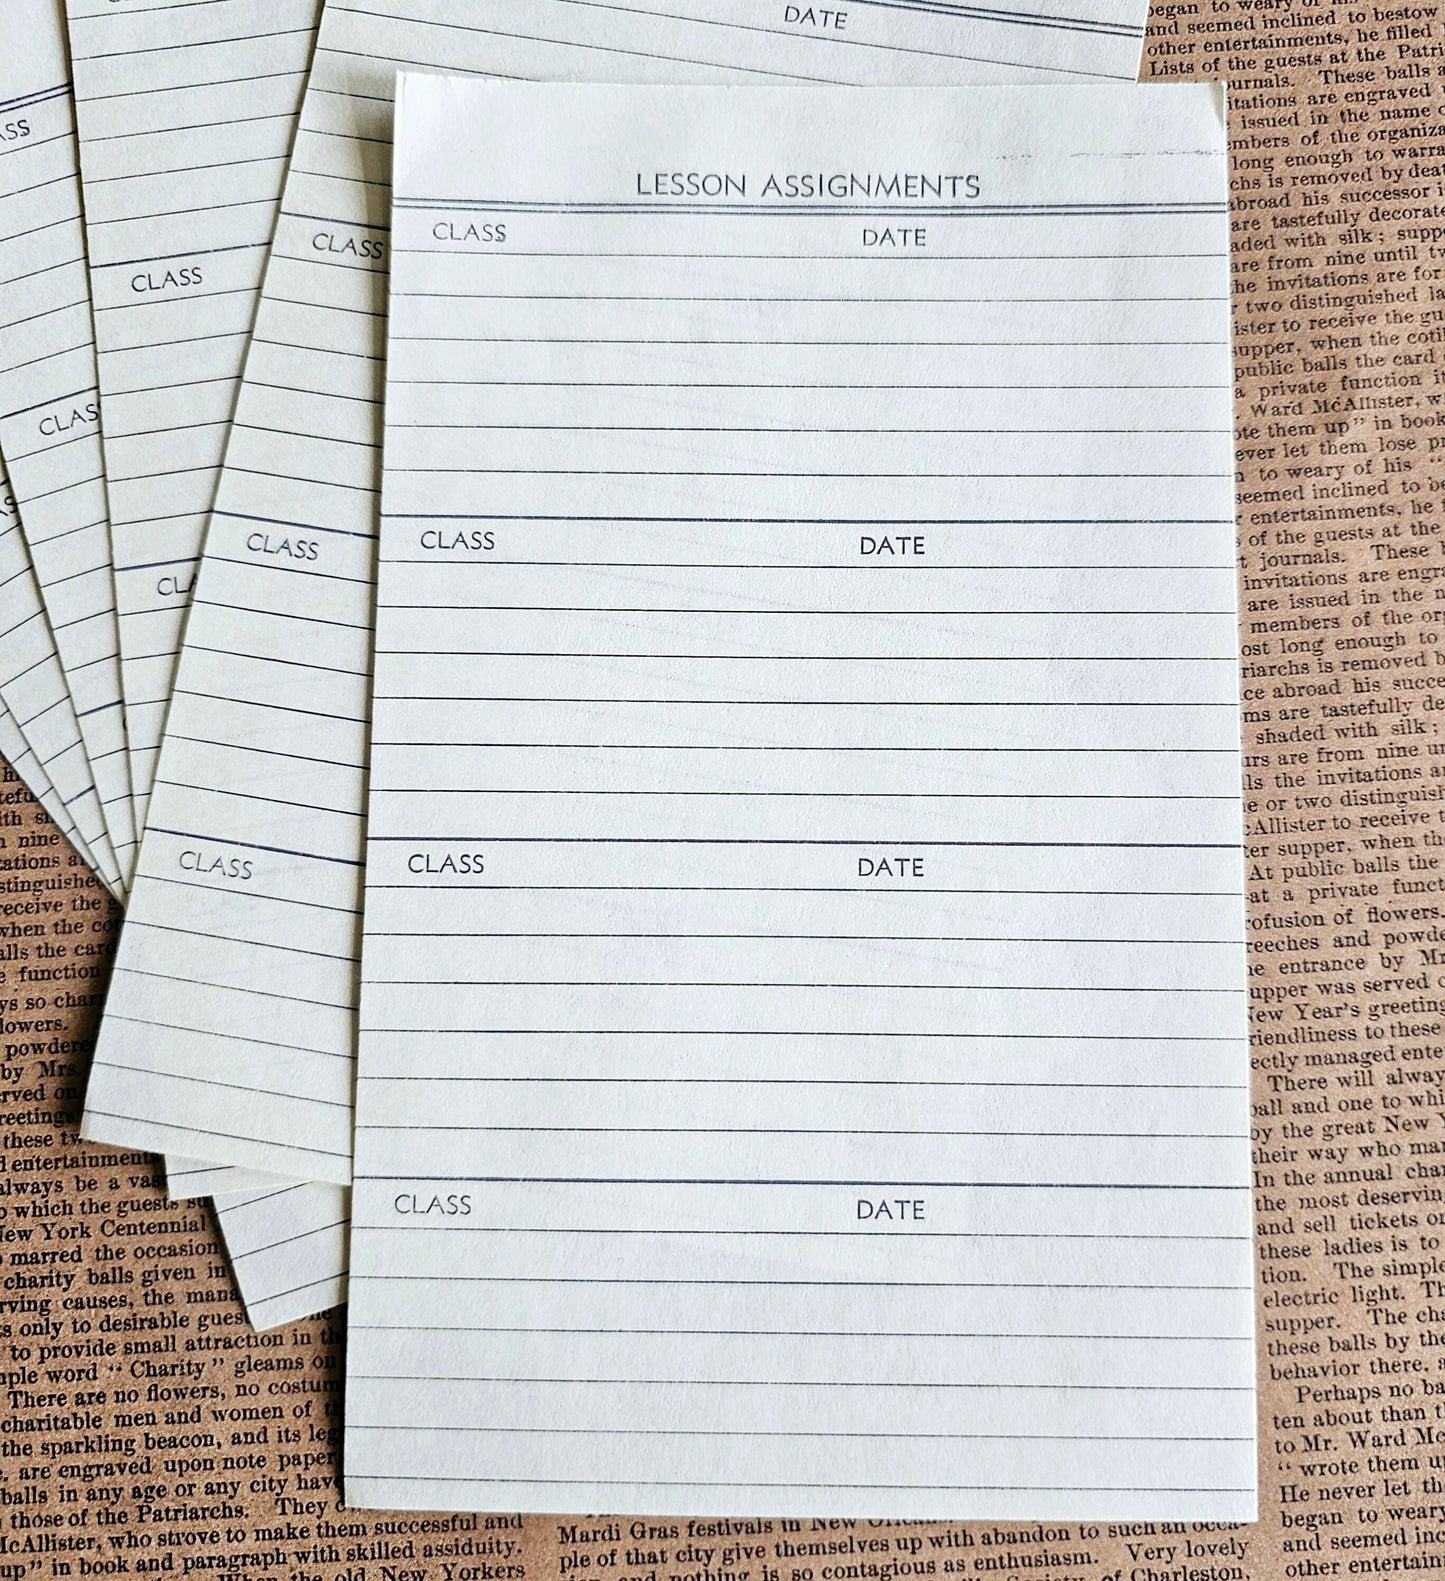 DATE
LESSON ASSIGNMENTS
CLASS DATE
CLASS DATE
CLASS DATE
CLASS DATE
CLASS
CLASS
CLASS
CLASS
began to weary of
and seemed inclined to bestow
other entertainments, he filled
Lists of the guests at the Patri
journals. These balls
itations are engraved
issued in the name
mbers of the organiza
long enough to warra
chs is removed by deat
abroad his successor i
are tastefully decorate
aded with silk; supp
are from nine until tw
he invitations are for
r two distinguished la
ister to receive the gu
supper, when the coti
public balls the card
a private function it
. Ward McAllister, w
ote them up” in book
ever let them lose pr
n to weary of his “
seemed inclined to be
r entertainments, he
of the guests at the
t journals. These
invitations are engra
are issued in the n
members of the org
ost long enough to
riarchs is removed b
ce abroad his succe
ms are tastefully de
shaded with silk;
urs are from nine un
ls the invitations a
e or two distinguish
cAllister to receive t
er supper, when the
At public balls the
at a private funct
rofusion of flowers.
reeches and powde
he entrance by Mr
upper was served
New Year's greeting
riendliness to these
ectly managed ente
There will alway
ball and one to whi
by the great New Y
their way who mar
In the annual char
the most deservin
and sell tickets or
these ladies is to
tion. The simple
electric light. Th
supper. The cha
these balls by the
behavior there, a
Perhaps no ba
ten about than t
to Mr. Ward Mc
“ wrote them u
He never let th
began to weary
and seemed inc
other entertain
ith s
n nine
tations a
stinguishe
receive the g
when the co
alls the card
e function
ys so char
lowers.
powdere
by Mrs.
rved on
reetings
these tw
d entertainment
always be a vas
o which the guests su
New York Centennial
marred the occasion
charity balls given in
rving causes, the mana
s only to desirable gues
to provide small attraction in th
mple word “ Charity ” gleams on
There are no flowers, no costum
charitable men and women of t
the sparkling beacon, and its leg
are engraved upon note paper
balls in any age or any city hav
those of the Patriarchs. They c
McAllister, who strove to make them successful and
up” in book and paragraph with skilled assiduity.
When the old New Yorkers
Mardi Gras festivals in New Orleans.
ple of that city give themselves up with abandon to such an occa-
sion, and nothing is so contagious as enthusiasm. Very lovely
of Charleston,